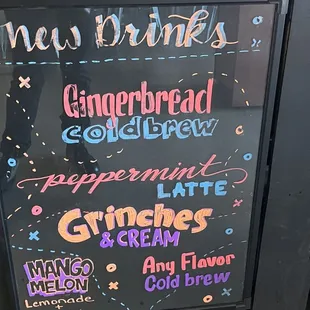 new Drinks
Gingerbread
cold brew
peppermint
LATTE
Grinches
& CREAM
MANGO
MELON
Lemonade
+
Any Flavor
Cold brew